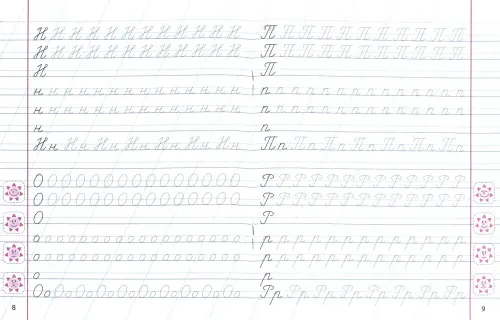 Н Н Н Н Н Н Н Н Н Н Н Н
Н Н Н Н Н Н Н Н Н Н Н Н
Н
н н н н н н н н н н н н н н
н н н н н н н н н н н н н н
н
Нн Нн Нн Нн Нн Нн Нн
О О О О О О О О О О О О О О О
О О О О О О О О О О О О О О О
О
о о о о о о о о о о о о о о о о о
о о о о о о о о о о о о о о о о о
о
Оо Оо Оо Оо Оо Оо Оо Оо Оо
8
П П П П П П П П П П П
П П П П П П П П П П П
П
п п п п п п п п п п п п п п п
п п п п п п п п п п п п п п п
п
Пп Пп Пп Пп Пп Пп Пп
Р Р Р Р Р Р Р Р Р Р Р Р Р
Р Р Р Р Р Р Р Р Р Р Р Р Р
Р
р р р р р р р р р р р р р
р р р р р р р р р р р р р
р
Рр Рр Рр Рр Рр Рр Рр Рр
9